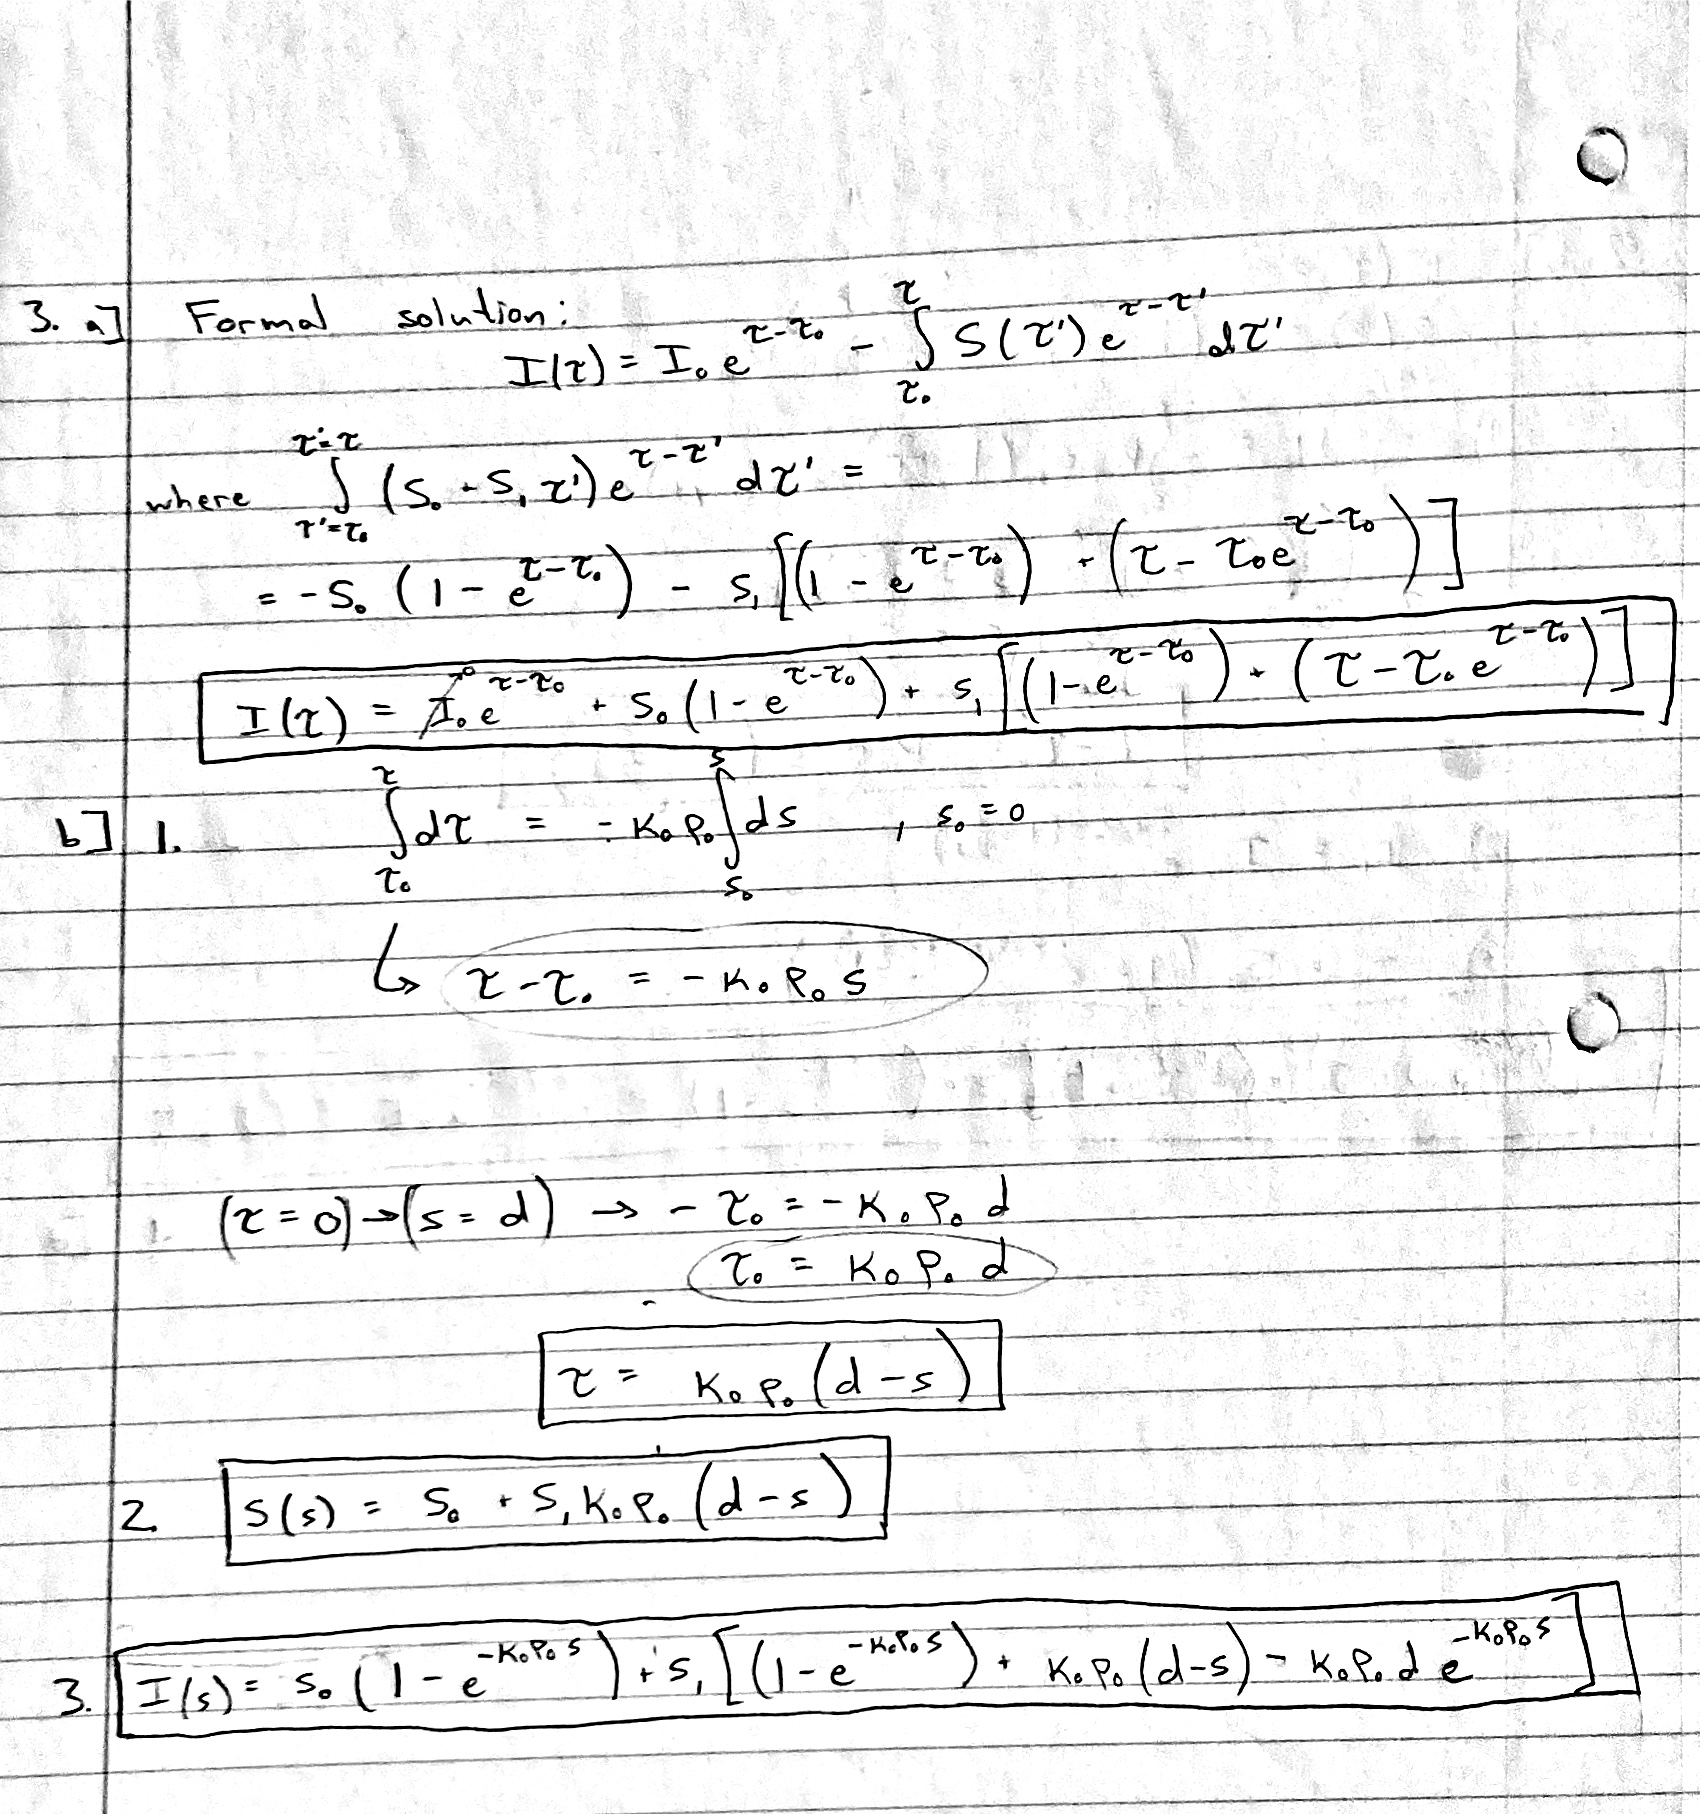 3. a] Formal solution:
I(τ) = I₀ e^{τ-τ₀} - ∫_{τ₀}^{τ} S(τ') e^{τ-τ'} dτ'
where ∫_{τ'=τ₀}^{τ'=τ} (S₀ + S₁ τ') e^{τ-τ'} dτ' =
= -S₀ (1 - e^{τ-τ₀}) - S₁ [(1 - e^{τ-τ₀}) + (τ - τ₀ e^{τ-τ₀})]
I(τ) = I₀ e^{τ-τ₀} + S₀ (1 - e^{τ-τ₀}) + S₁ [(1 - e^{τ-τ₀}) + (τ - τ₀ e^{τ-τ₀})]
b] 1. ∫_{τ₀}^{τ} dτ = -κ₀ρ₀ ∫_{s₀}^{s} ds , s₀ = 0
↳ τ - τ₀ = -κ₀ρ₀ s
(τ = 0) → (s = d) → - τ₀ = - κ₀ρ₀ d
τ₀ = κ₀ρ₀ d
τ = κ₀ρ₀ (d - s)
2. S(s) = S₀ + S₁ κ₀ρ₀ (d - s)
3. I(s) = S₀ (1 - e^{-κ₀ρ₀s}) + S₁ [(1 - e^{-κ₀ρ₀s}) + κ₀ρ₀ (d - s) - κ₀ρ₀ d e^{-κ₀ρ₀s}]